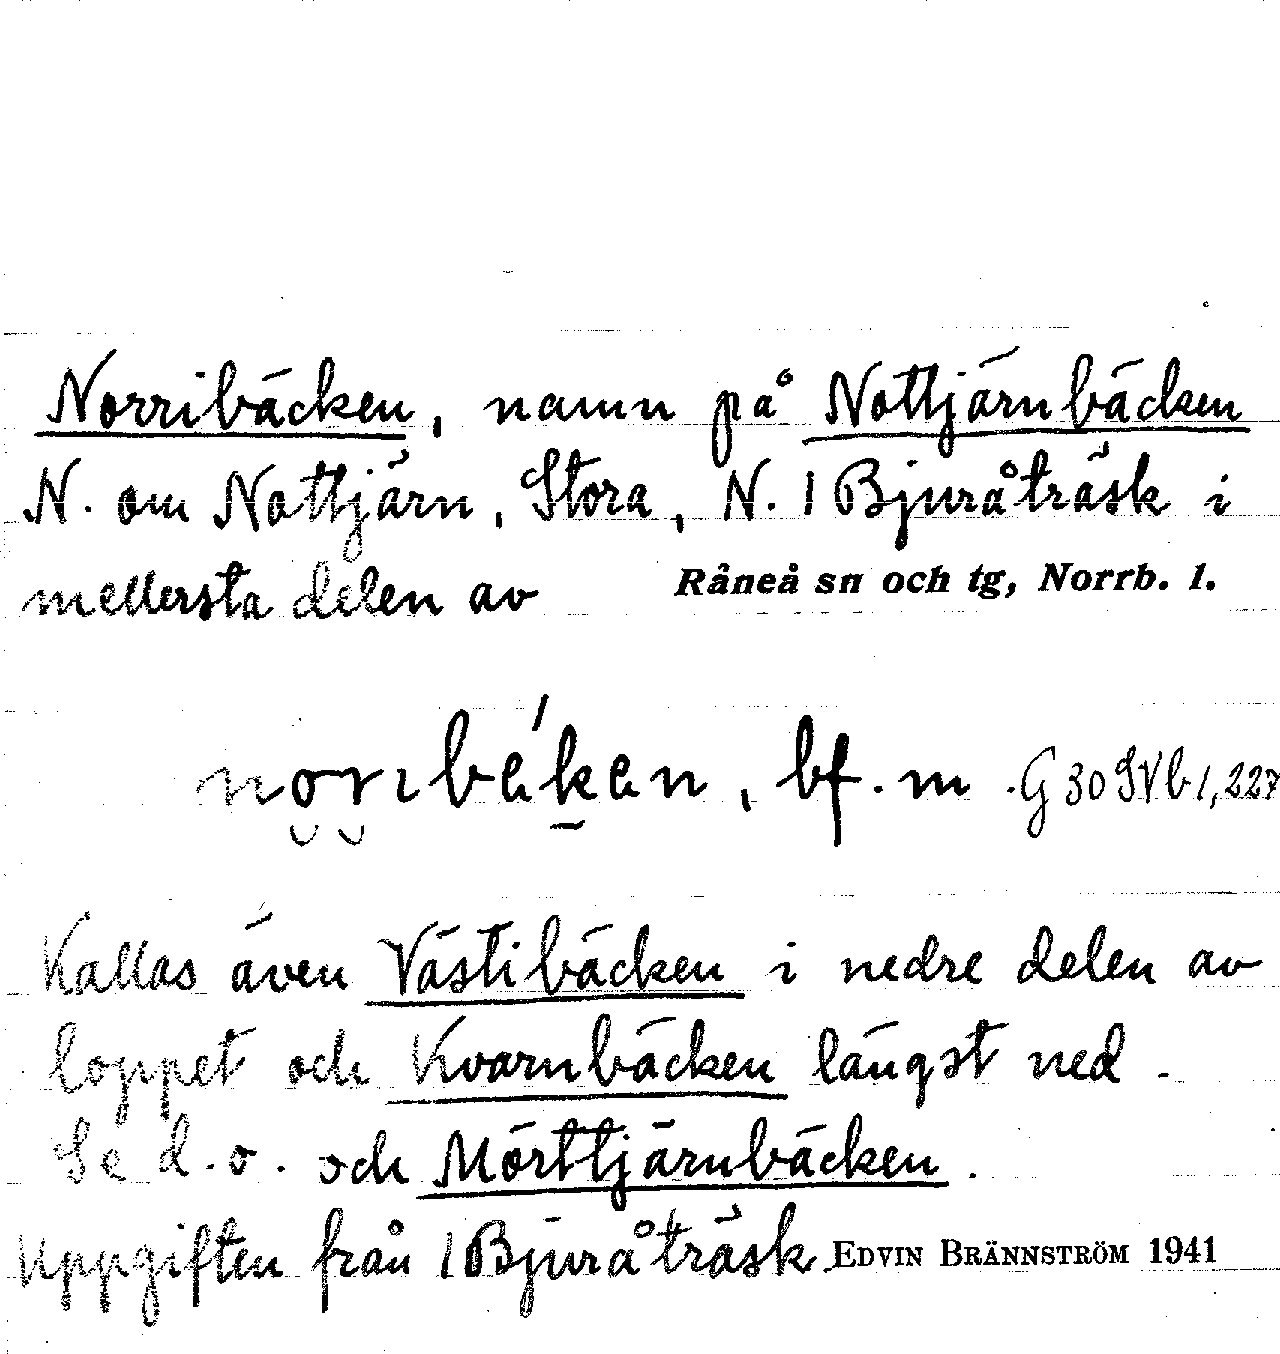 Norribäcken, namn på Nottjärnbäcken
N. om Nottjärn, Stora, N. 1 Bjuråträsk i
mellersta delen av Råneå sn och tg, Norrb. l.
norıbékan, bf. m. G 30 SVb1,227
Kallas även Västibäcken i nedre delen av
loppet och Kvarnbäcken längst ned.
Se d.o. och Mörttjärnbäcken.
Uppgiften från 1 Bjuråträsk. EDVIN BRÄNNSTRÖM 1941